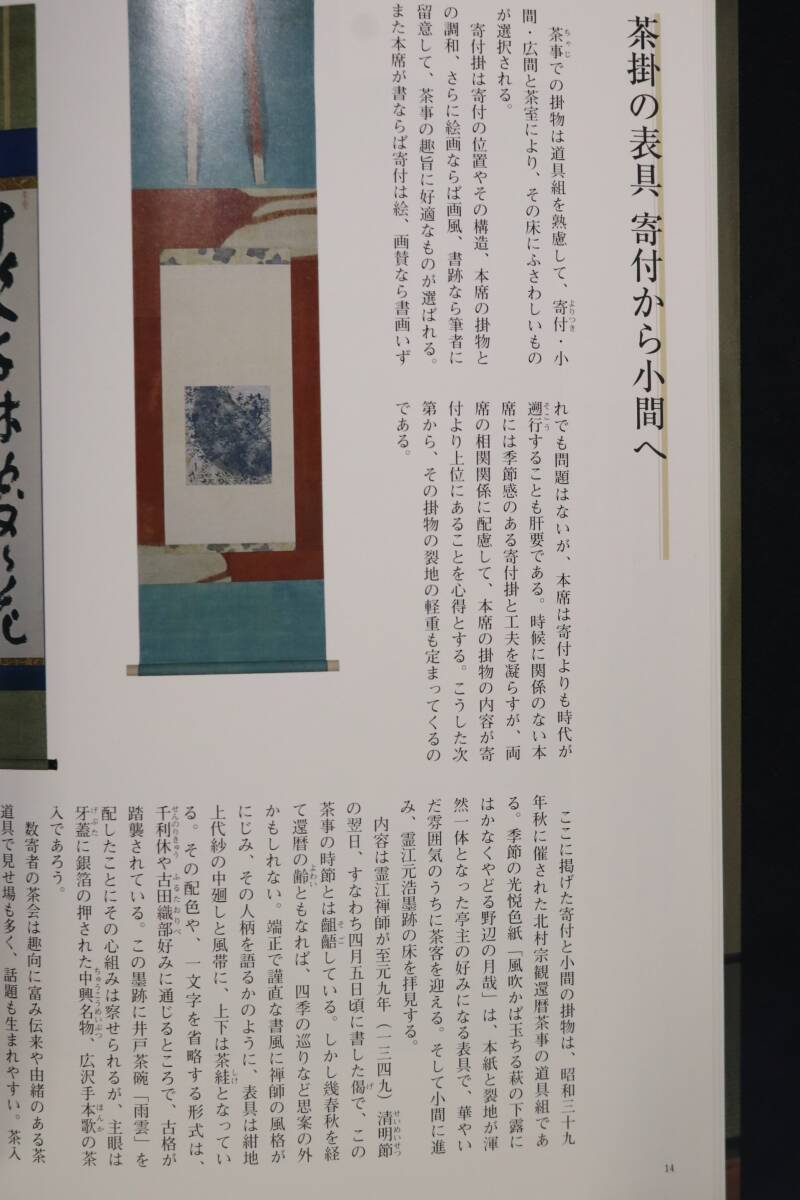 茶掛の表具 寄付から小間へ
茶事での掛物は道具組を熟慮して、寄付・小
間・広間と茶室により、その床にふさわしいもの
が選択される。
寄付掛は寄付の位置やその構造、本席の掛物と
の調和、さらに絵画ならば画風、書跡なら筆者に
留意して、茶事の趣旨に好適なものが選ばれる。
また本席が書ならば寄付は絵、画賛なら書画いず
れでも問題はないが、本席は寄付よりも時代が
遡行することも肝要である。時候に関係のない本
席には季節感のある寄付掛と工夫を凝らすが、両
席の相関関係に配慮して、本席の掛物の内容が寄
付より上位にあることを心得とする。こうした次
第から、その掛物の裂地の軽重も定まってくるの
である。
ここに掲げた寄付と小間の掛物は、昭和三十九
年秋に催された北村宗観還暦茶事の道具組であ
る。季節の光悦色紙「風吹かば玉ちる萩の下露に
はかなくやどる野辺の月哉」は、本紙と裂地が渾
然一体となった亭主の好みになる表具で、華やい
だ雰囲気のうちに茶客を迎える。そして小間に進
み、霊江元浩墨跡の床を拝見する。
内容は霊江禅師が至元九年（一三四九）清明節
の翌日、すなわち四月五日頃に書した偈で、この
茶事の時節とは齟齬している。しかし幾春秋を経
て還暦の齢ともなれば、四季の巡りなど思案の外
かもしれない。端正で謹直な書風に禅師の風格が
にじみ、その人柄を語るかのように、表具は紺地
上代紗の中廻しと風帯に、上下は茶絓となってい
る。その配色や、一文字を省略する形式は、
千利休や古田織部好みに通じるところで、古格が
踏襲されている。この墨跡に井戸茶碗「雨雲」を
配したことにその心組みは察せられるが、主眼は
牙蓋に銀箔の押された中興名物、広沢手本歌の茶
入であろう。
数寄者の茶会は趣向に富み伝来や由緒のある茶
道具で見せ場も多く、話題も生まれやすい。茶入
14